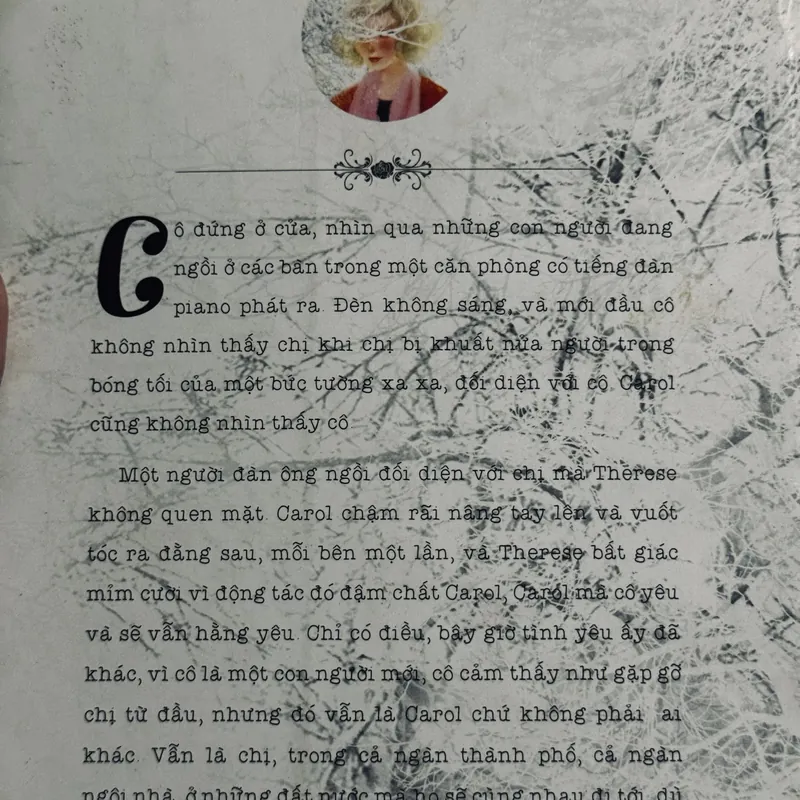 Cô đứng ở cửa, nhìn qua những con người đang
ngồi ở các bàn trong một căn phòng có tiếng đàn
piano phát ra. Đèn không sáng, và mới đầu cô
không nhìn thấy chị khi chị bị khuất nửa người trong
bóng tối của một bức tường xa xa, đối diện với cô. Carol
cũng không nhìn thấy cô.
Một người đàn ông ngồi đối diện với chị mà Therese
không quen mặt. Carol chậm rãi nâng tay lên và vuốt
tóc ra đằng sau, mỗi bên một lần, và Therese bất giác
mỉm cười vì động tác đó đậm chất Carol, Carol mà cô yêu
và sẽ vẫn hằng yêu. Chỉ có điều, bây giờ tình yêu ấy đã
khác, vì cô là một con người mới, cô cảm thấy như gặp gỡ
chị từ đầu, nhưng đó vẫn là Carol chứ không phải ai
khác. Vẫn là chị, trong cả ngàn thành phố, cả ngàn
ngôi nhà, ở những đất nước mà họ sẽ cùng nhau đi tới, dù